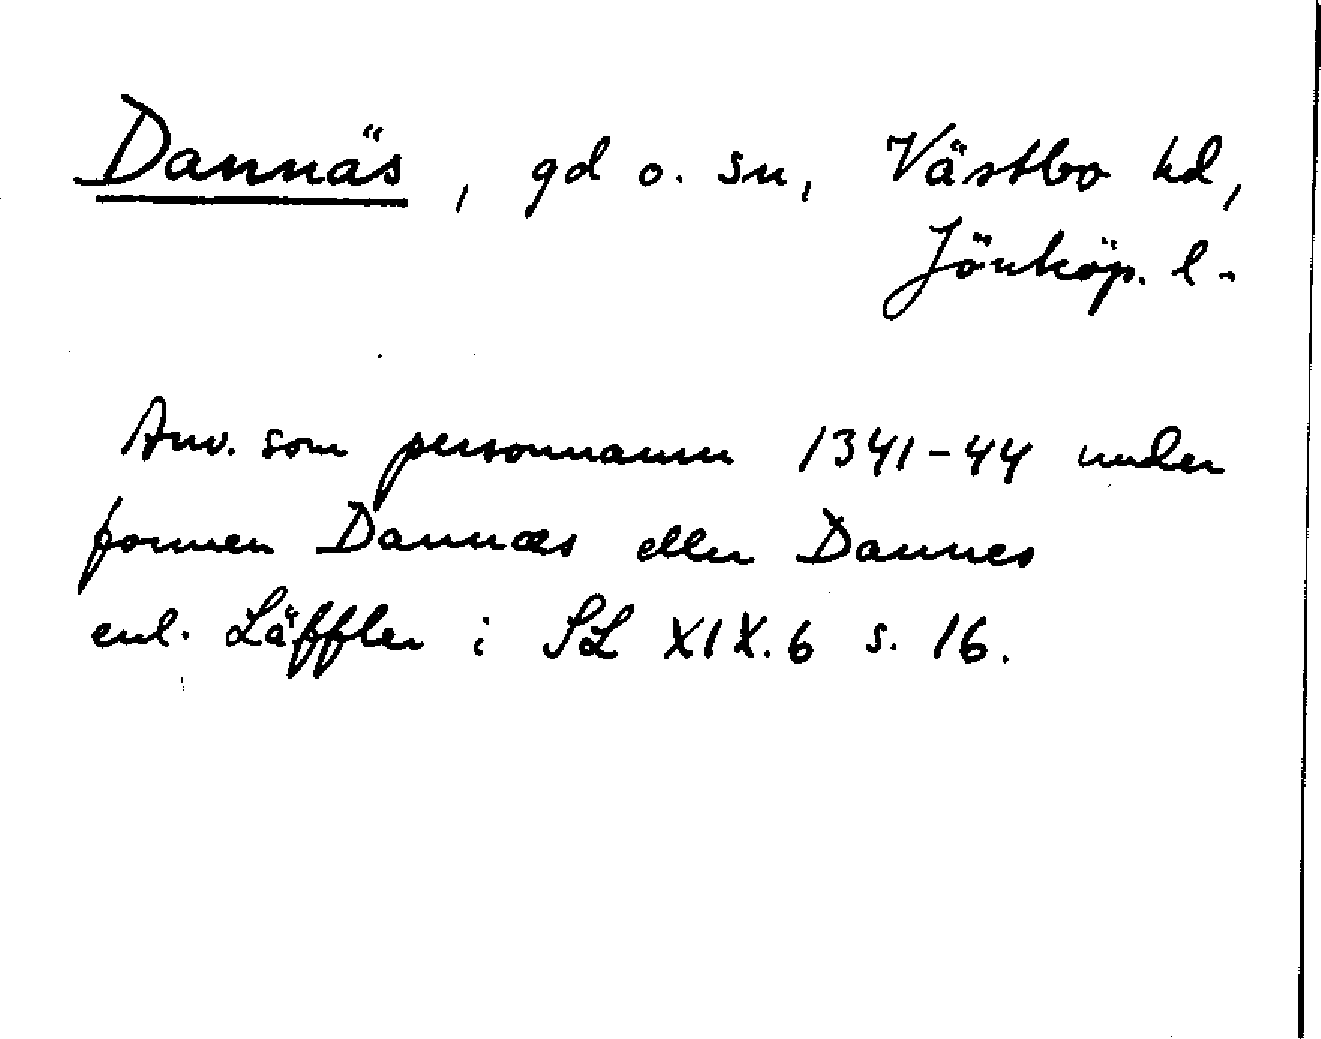 Dannäs, gd o. sn, Västbo hd,
Jönköp. l.
Anv. som personnamn 1341-44 under
formen Dannæs eller Dannes
enl. Läffler i SL XIX.6 s. 16.